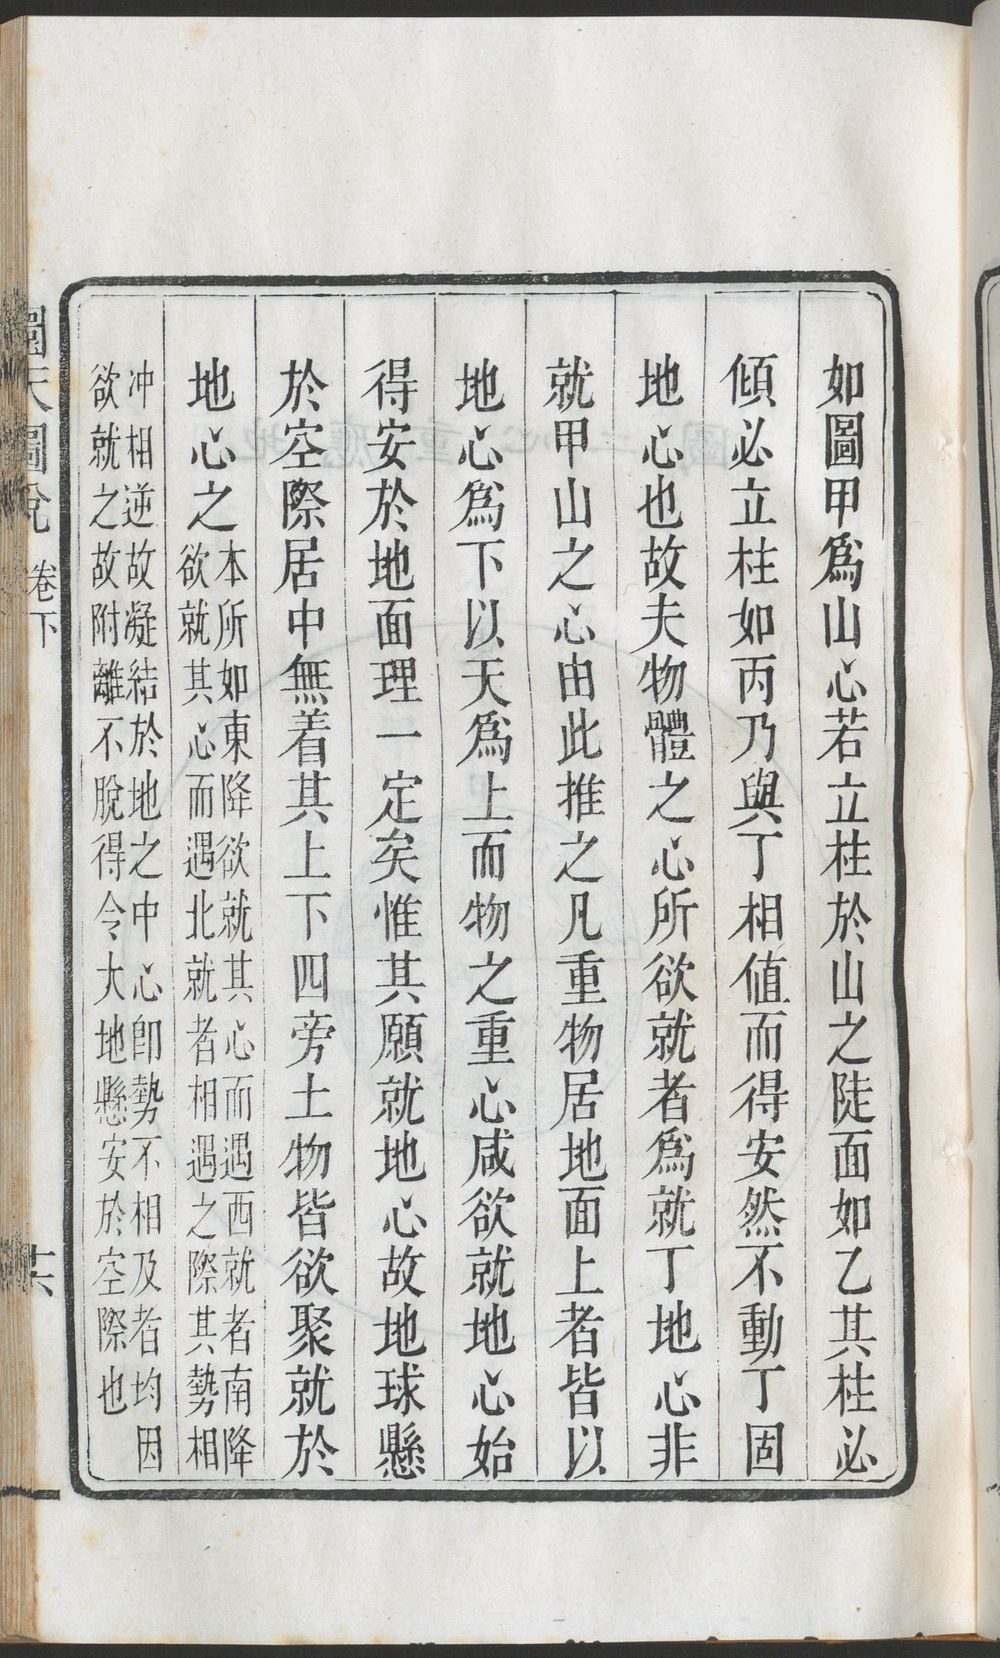 如圖甲爲山心若立柱於山之陡面如乙其柱必
傾必立柱如丙乃與丁相值而得安然不動丁固
地心也故夫物體之心所欲就者爲就丁地心非
就甲山之心由此推之凡重物居地面上者皆以
地心爲下以天爲上而物之重心咸欲就地心始
得安於地面理一定矣惟其願就地心故地球懸
於空際居中無着其上下四旁土物皆欲聚就於
地心之
本所如東降欲就其心而遇西就者南降
欲就其心而遇北就者相遇之際其勢相
冲相逆故凝結於地之中心卽勢不相及者均因
欲就之故附離不脫得令大地懸安於空際也
圜天圖說 卷下